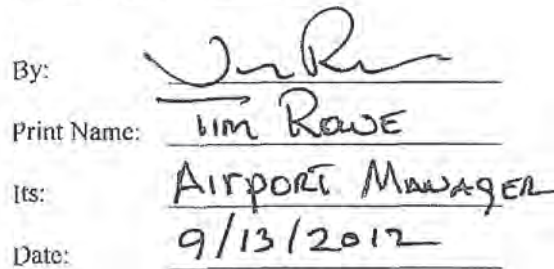 By:
Print Name: Tim Rowe
Its: Airport Manager
Date: 9/13/2012